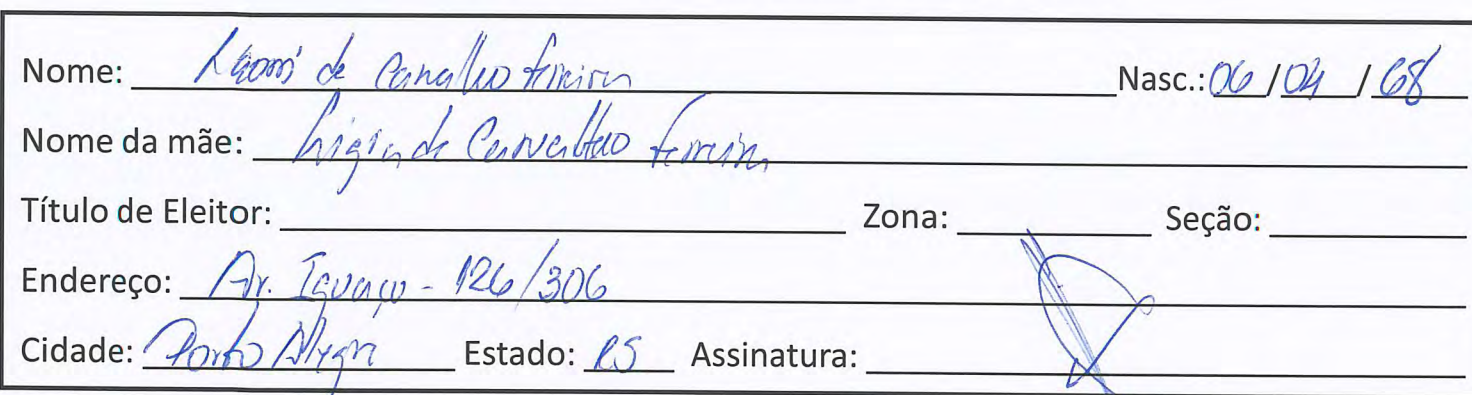 Nome: de Carvalho Ferreira Nasc.: 06 / 04 / 68
Nome da mãe: Ligia de Carvalho Ferreira
Título de Eleitor: Zona: Seção:
Endereço: Av. Iguaçu - 126/306
Cidade: Porto Alegre Estado: RS Assinatura: